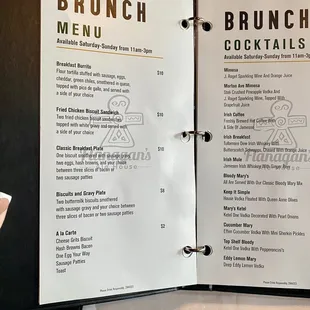 BRUNCH
MENU
Available Saturday-Sunday from 11am-3pm
Breakfast Burrito
Flour tortilla stuffed with sausage, eggs,
cheddar, green chiles, smothered in queso,
topped with pico de gallo, and served with
a side of your choice
$10
Fried Chicken Biscuit Sandwich
Two fried chicken biscuit sandwiches
topped with white gravy and served with
a side of your choice
$10
Classic Breakfast Plate
One biscuit smothered in
two eggs, hash browns, and your choice
between three slices of bacon or
two sausage patties
Biscuits and Gravy Plate
Two buttermilk biscuits smothered
with sausage gravy and your choice between
three slices of bacon or two sausage patties
A la Carte
Cheese Grits Biscuit
Hash Browns Bacon
One Egg Your Way
Sausage Patties
Toast
$2
Flanagan's
HOUSE
BRUNCH
COCKTAILS
Available Saturday-Sunday from 11am-3pm
Mimosa
J. Roget Sparkling Wine And Orange Juice
Morton Ave Mimosa
Pineapple Vodka And
J. Roget Sparkling Wine Topped With
Irish Coffee
A Side Of Jameson
Irish Breakfast
Tullamore Dew Irish Whiskey With
Butterscotch Schnapps, Orange Juice
Irish Mule
Jameson Irish Whiskey With Ginger Beer
Bloody Mary's
All Are Served With Our Classic Bloody Mary Mix
Keep It Simple
Vodka Floated With Queen Anne Olives
Mary's Ketel
Ketel One Vodka Decorated With Pearl Onions
Cucumber Mary
Effen Cucumber Vodka With Mini Gherkin Pickles
Top Shelf Bloody
Ketel One Vodka With Pepperoncini's
Eddy Lemon Mary
Deep Eddy Lemon Vodka
Flanagan's
HOUSE